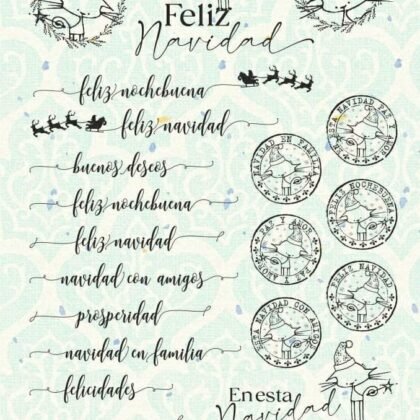 Feliz
Navidad
feliz nochebuena
feliz navidad
ESTA NAVIDAD PAZ Y AMOR
NAVIDAD EN FAMILIA
buenos deseos
feliz nochebuena
FELIZ NOCHEBUENA
PAZ Y AMOR PAZ Y AMOR
feliz navidad
FELIZ NAVIDAD
navidad con amigos
ESTA NAVIDAD CON AMIGOS
prosperidad
navidad en familia
felicidades
En esta
Navidad